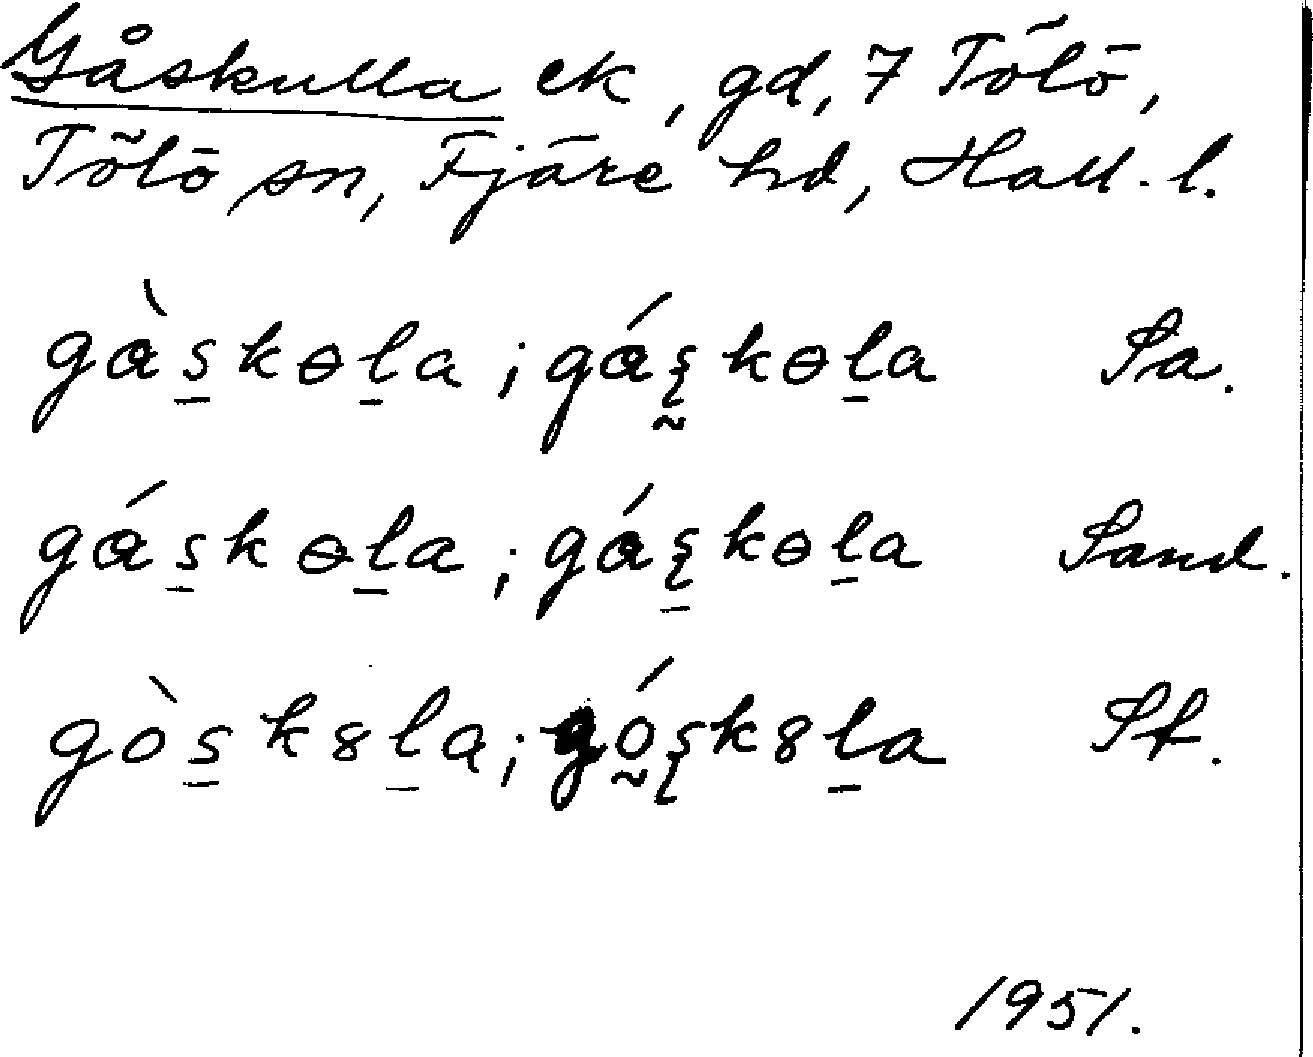 Gåskulla ek, gd, 7 Tölö,
Tölö sn, Fjäre hd, Hall. l.
gàs̠kɵl̠a; gás̰kɵl̠a Sa.
gás̠kɵl̠a; gás̠kɵl̠a Sand.
gòs̠k8l̠a; gó̰sk8l̠a St.
1951.